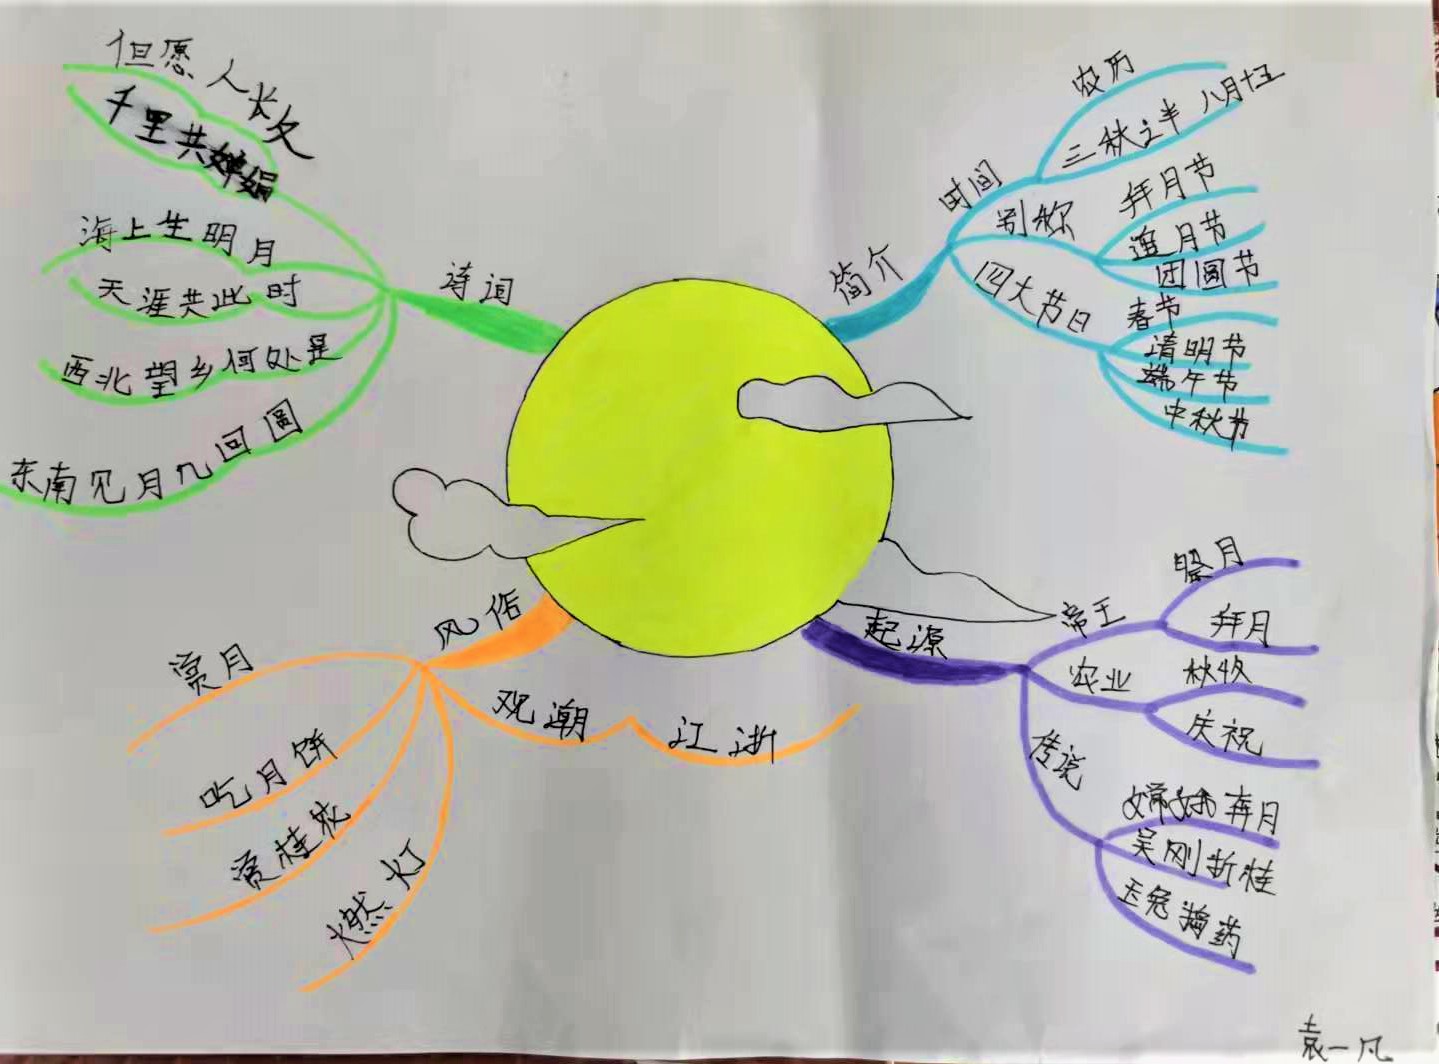 诗词
但愿人长久
千里共婵娟
海上生明月
天涯共此时
西北望乡何处是
东南见月几回圆
简介
时间
农历
八月十五
三秋之半
别称
拜月节
追月节
团圆节
四大节日
春节
清明节
端午节
中秋节
风俗
赏月
吃月饼
赏桂花
燃灯
观潮
江浙
起源
帝王
祭月
拜月
农业
秋收
庆祝
传说
嫦娥奔月
吴刚折桂
玉兔捣药
袁一凡